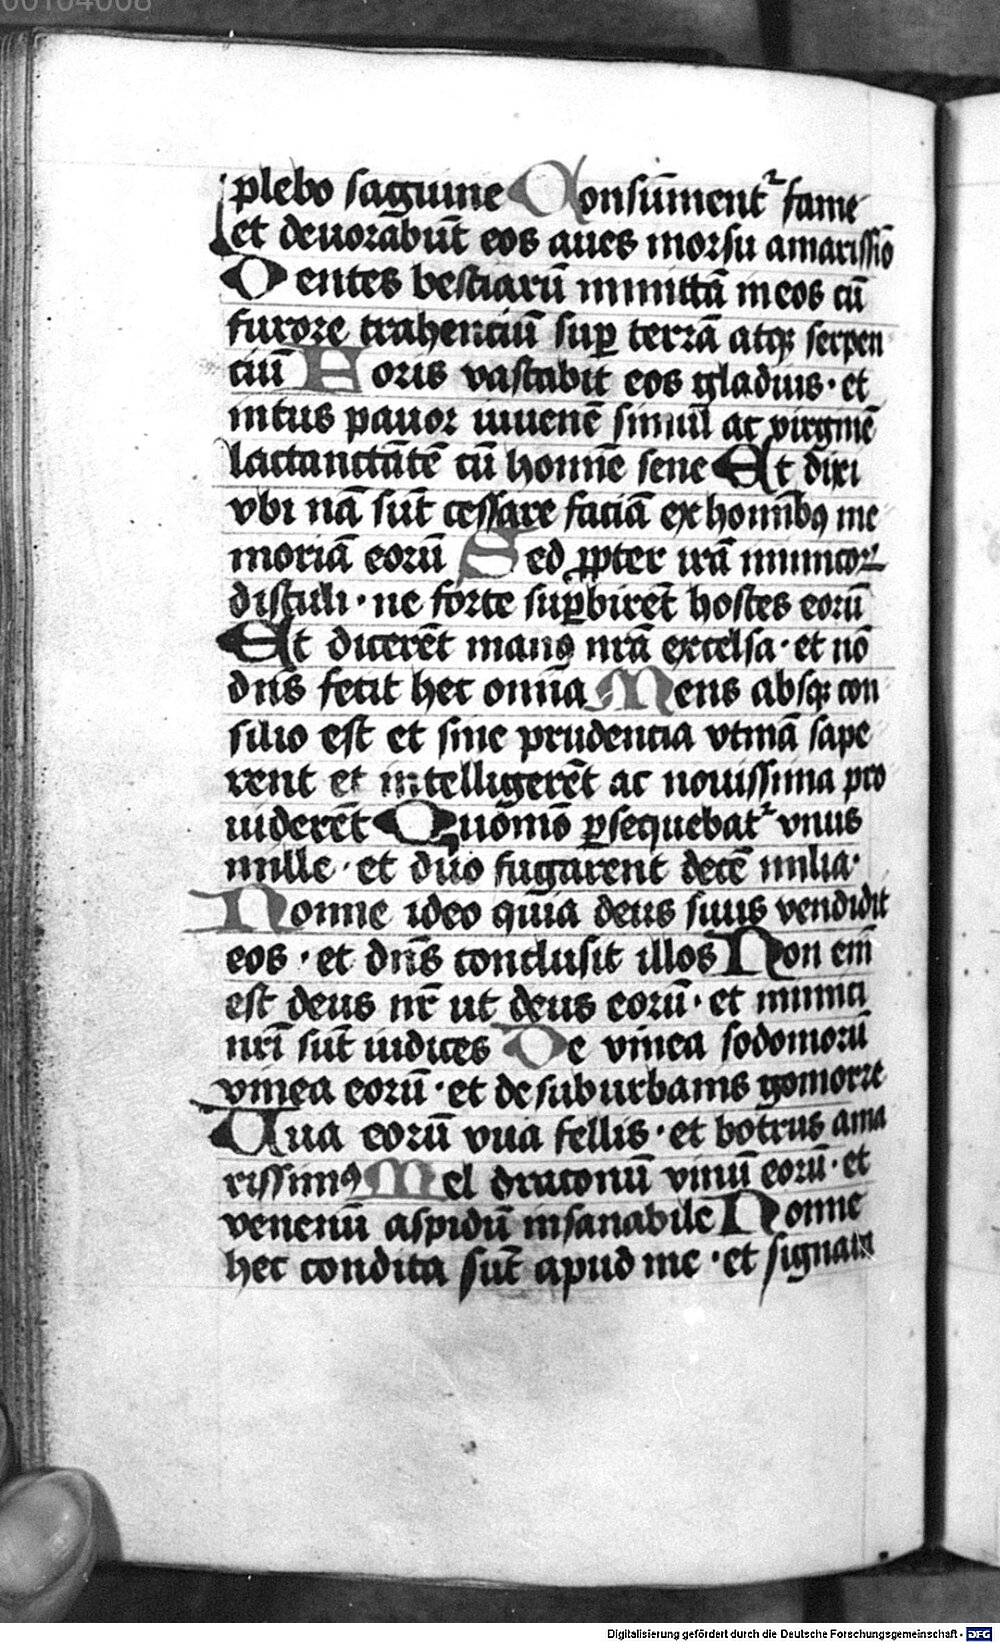 00104008
plebo saguine Consumēt² fame
et deuorabūt eos aues morsu amarissīō
Dentes bestiarū inmittā in eos cū
furore trahenciū suꝑ terrā atqꝫ serpen
ciū Foris vastabit eos gladius · et
intus pauor iuuenē simul ac virginē
lactantē cū homine sene Et dixi
vbi nā sūt cessare faciā ex homībꝰ me
moriā eorū Sed ꝓpter irā inimicoꝝ
distuli · ne forte suꝑbirēt hostes eorū
Et dicerēt manꝰ nr̄a excelsa · et nō
dn̄s fecit hec omīa Gens absqꝫ con
silio est et sine prudencia vtinā sape
rent et intelligerēt ac nouissima pro
uiderēt Quōmō ꝑsequebat² vnus
mille · et duo fugarent decē milia ·
Nonne ideo quia deus suus vendidit
eos · et dn̄s conclusit illos Non em̄
est deus nr̄ ut deus eorū · et inimici
nr̄i sūt iudices De vinea sodomorū
vinea eorū · et de suburbanis gomorre
Uua eorū vua fellis · et botrus ama
rissimꝰ Mel draconū vinū eorū · et
venenū aspidū insanabile Nonne
hec condita sūt apud me · et signata
Digitalisierung gefördert durch die Deutsche Forschungsgemeinschaft - DFG